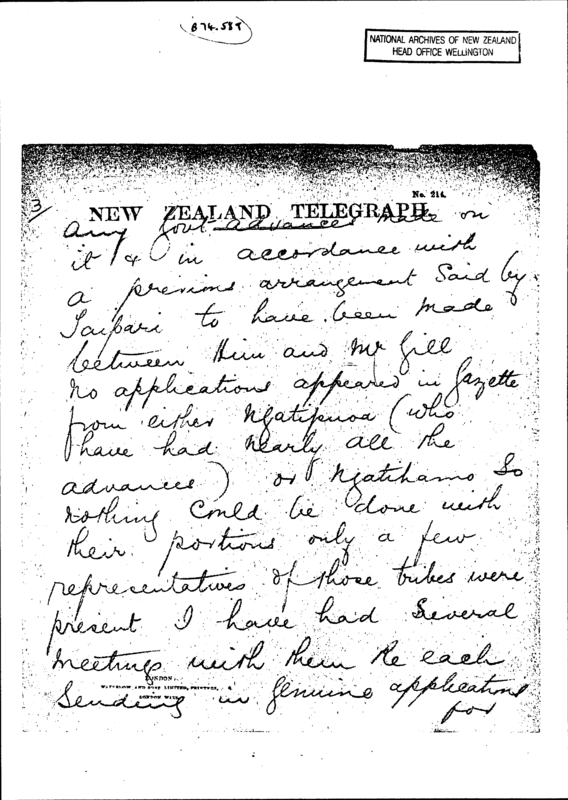 B74.587
NATIONAL ARCHIVES OF NEW ZEALAND
HEAD OFFICE WELLINGTON
No. 214.
3/
NEW ZEALAND TELEGRAPH.
any Govt advances made on
it & in accordance with
a previous arrangement said by
Taipari to have been made
between Him and Mr Gill
no applications appeared in Gazette
from either Ngatipuoa (who
have had nearly all the
advances) or Ngatihamo So
nothing could be done with
their portions only a few
representatives of those tribes were
present I have had Several
meetings with them Re each
LONDON:
WATERLOW AND SONS LIMITED, PRINTERS,
LONDON WALL.
Sending in genuine applications
for